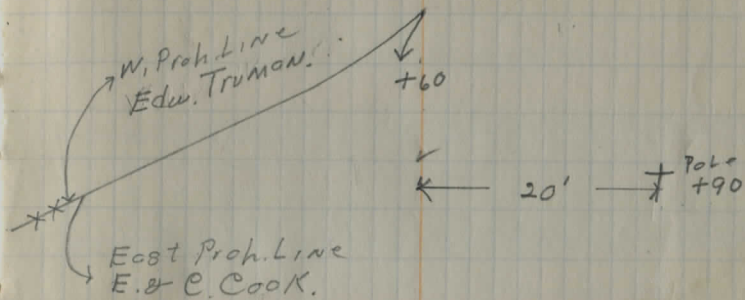 W. Prop. Line
Edw. Truman.
+60
20'
Pole
+90
East Prop. Line
E. & C. Cook.